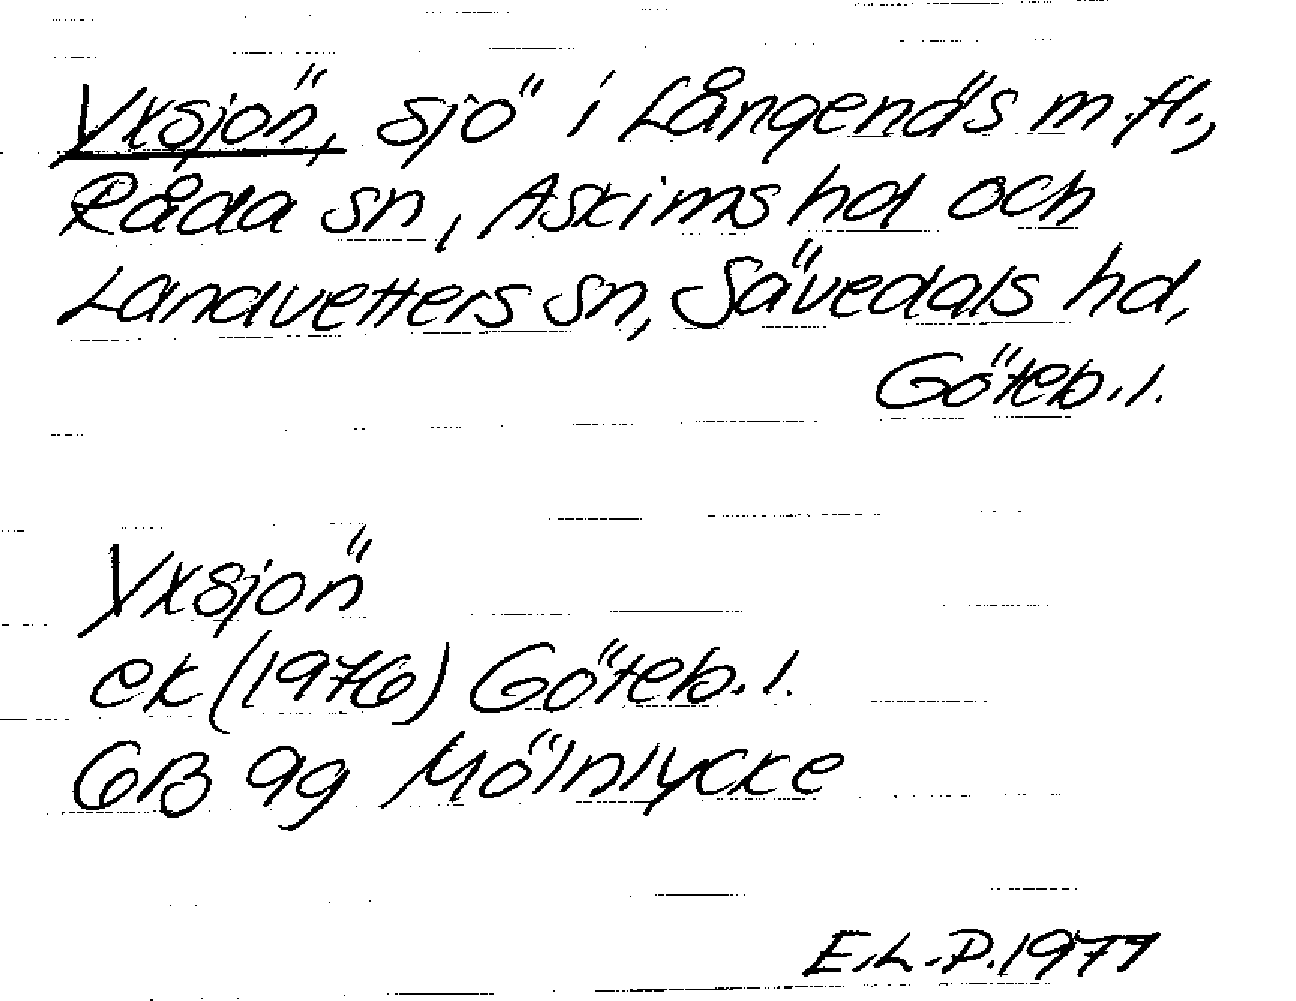 Yxsjön, sjö i Långenäs m.fl.,
Råda sn, Askims hd och
Landvetters sn, Sävedals hd,
Göteb.l.
Yxsjön
ek (1976) Göteb.l.
6B 9g Mölnlycke
E.L.P.1977